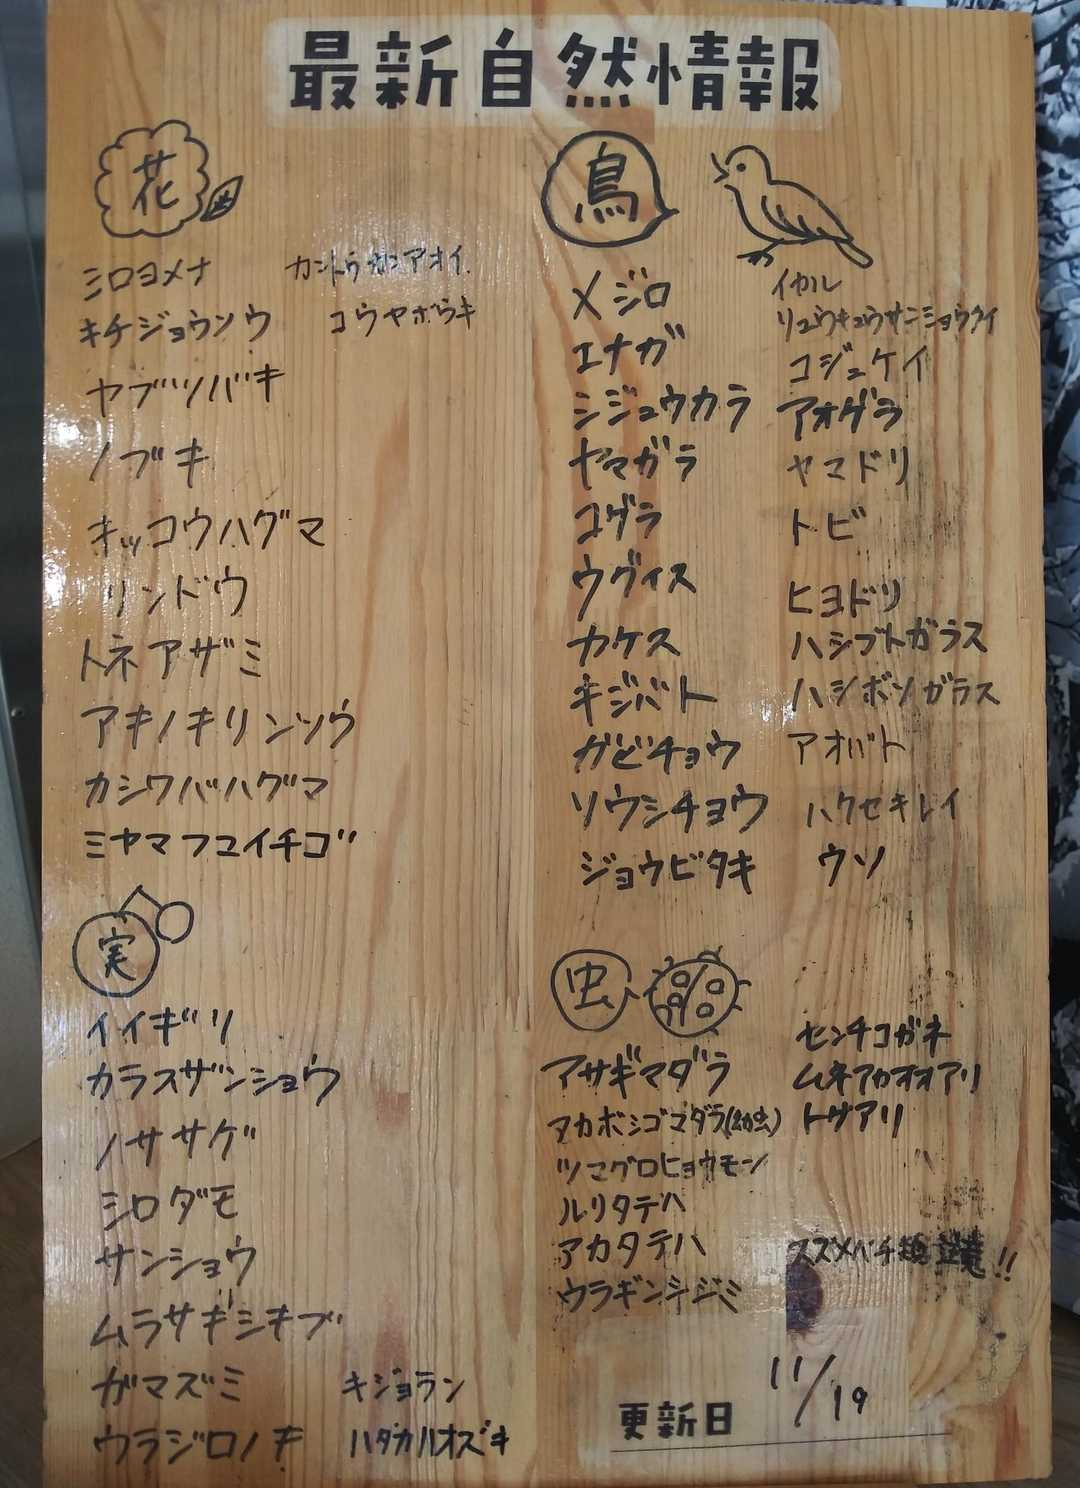 最新自然情報
花
シロヨメナ
キチジョウソウ
ヤブツバキ
ノブキ
キッコウハグマ
リンドウ
トネアザミ
アキノキリンソウ
カシワバハグマ
ミヤマフユイチゴ
カントウカンアオイ
コウヤボウキ
実
イイギリ
カラスザンショウ
ノササゲ
シロダモ
サンショウ
ムラサキシキブ
ガマズミ
ウラジロノキ
キジョラン
ハダカホオズキ
鳥
メジロ
エナガ
シジュウカラ
ヤマガラ
コゲラ
ウグイス
カケス
キジバト
ガビチョウ
ソウシチョウ
ジョウビタキ
イカル
リュウキュウサンショウクイ
コジュケイ
アオゲラ
ヤマドリ
トビ
ヒヨドリ
ハシブトガラス
ハシボソガラス
アオバト
ハクセキレイ
ウソ
虫
アサギマダラ
アカボシゴマダラ(幼虫)
ツマグロヒョウモン
ルリタテハ
アカタテハ
ウラギンシジミ
センチコガネ
ムネアカオオアリ
トゲアリ
スズメバチ類
!!
更新日 11/19